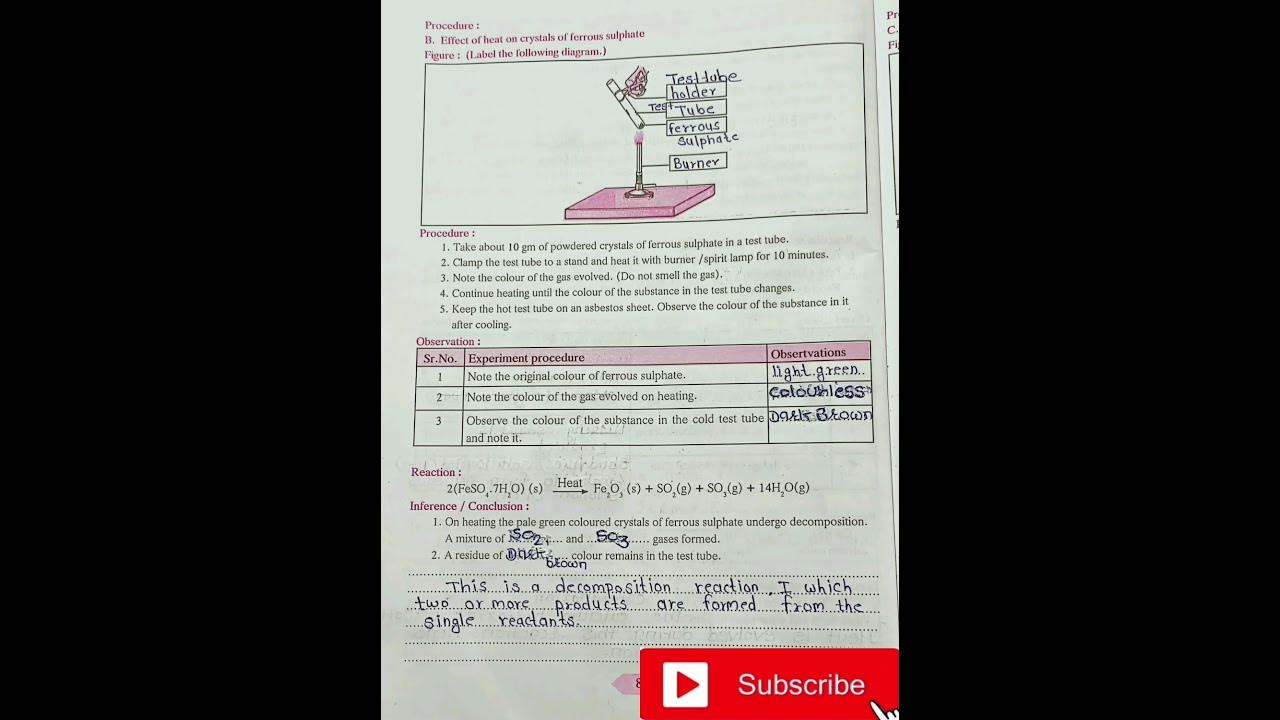 Procedure :
B. Effect of heat on crystals of ferrous sulphate
Figure : (Label the following diagram.)
Testtube
holder
Test Tube
ferrous
sulphate
Burner
Procedure :
1. Take about 10 gm of powdered crystals of ferrous sulphate in a test tube.
2. Clamp the test tube to a stand and heat it with burner /spirit lamp for 10 minutes.
3. Note the colour of the gas evolved. (Do not smell the gas).
4. Continue heating until the colour of the substance in the test tube changes.
5. Keep the hot test tube on an asbestos sheet. Observe the colour of the substance in it
after cooling.
Observation :
Sr.No. Experiment procedure Obsertvations
1 Note the original colour of ferrous sulphate. light green..
2 Note the colour of the gas evolved on heating. colourless
3 Observe the colour of the substance in the cold test tube Dark Brown
and note it.
Reaction :
2(FeSO₄.7H₂O) (s) Heat → Fe₂O₃ (s) + SO₂(g) + SO₃(g) + 14H₂O(g)
Inference / Conclusion :
1. On heating the pale green coloured crystals of ferrous sulphate undergo decomposition.
A mixture of SO2 and SO3 gases formed.
2. A residue of Dark brown colour remains in the test tube.
This is a decomposition reaction, I which
two or more products are formed from the
single reactants.
Subscribe
Pr
C.
Fi